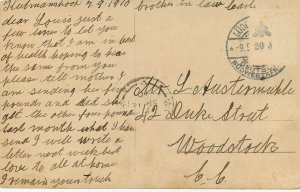 Keetmanshoop 7.9.1920
dear Louis Just a
few lines to let you
know that I am in best
of health hoping to hear
the same from you
please tell mother I
am sending her five
pounds and did she
get the other four pound
last month what I then
send I will write a
letter next week best
love to all at home
I remain yours truly
brother in law Carl
Mr L Austermühle
42 Duke Street
Woodstock
C.C.